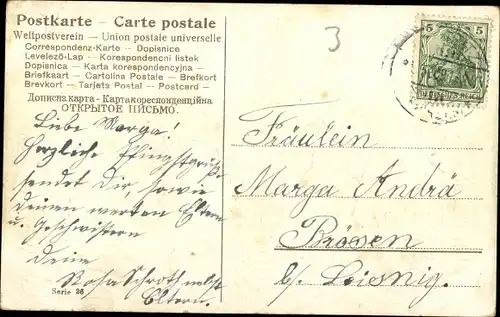 Postkarte - Carte postale
Weltpostverein — Union postale universelle
Correspondenz-Karte — Dopisnice
Levelező-Lap — Korespondencni listek
Dopisnica — Karta korespondencyjna —
Briefkaart — Cartolina Postale — Brefkort
Brevkort — Tarjeta Postal — Postcard —
Дописна карта - Картакореспонденційна
ОТКРЫТОЕ ПИСЬМО.
3
5 5
DEUTSCHES REICH
Liebe Marga!
Herzliche Pfingstgrüße
sendet Dir, sowie
deinen werten Eltern
u. Geschwistern
Deine
Rosa Schroth nebst
Eltern.
Serie 26
Fräulein
Marga Andrä
Brösen
b/. Leisnig.